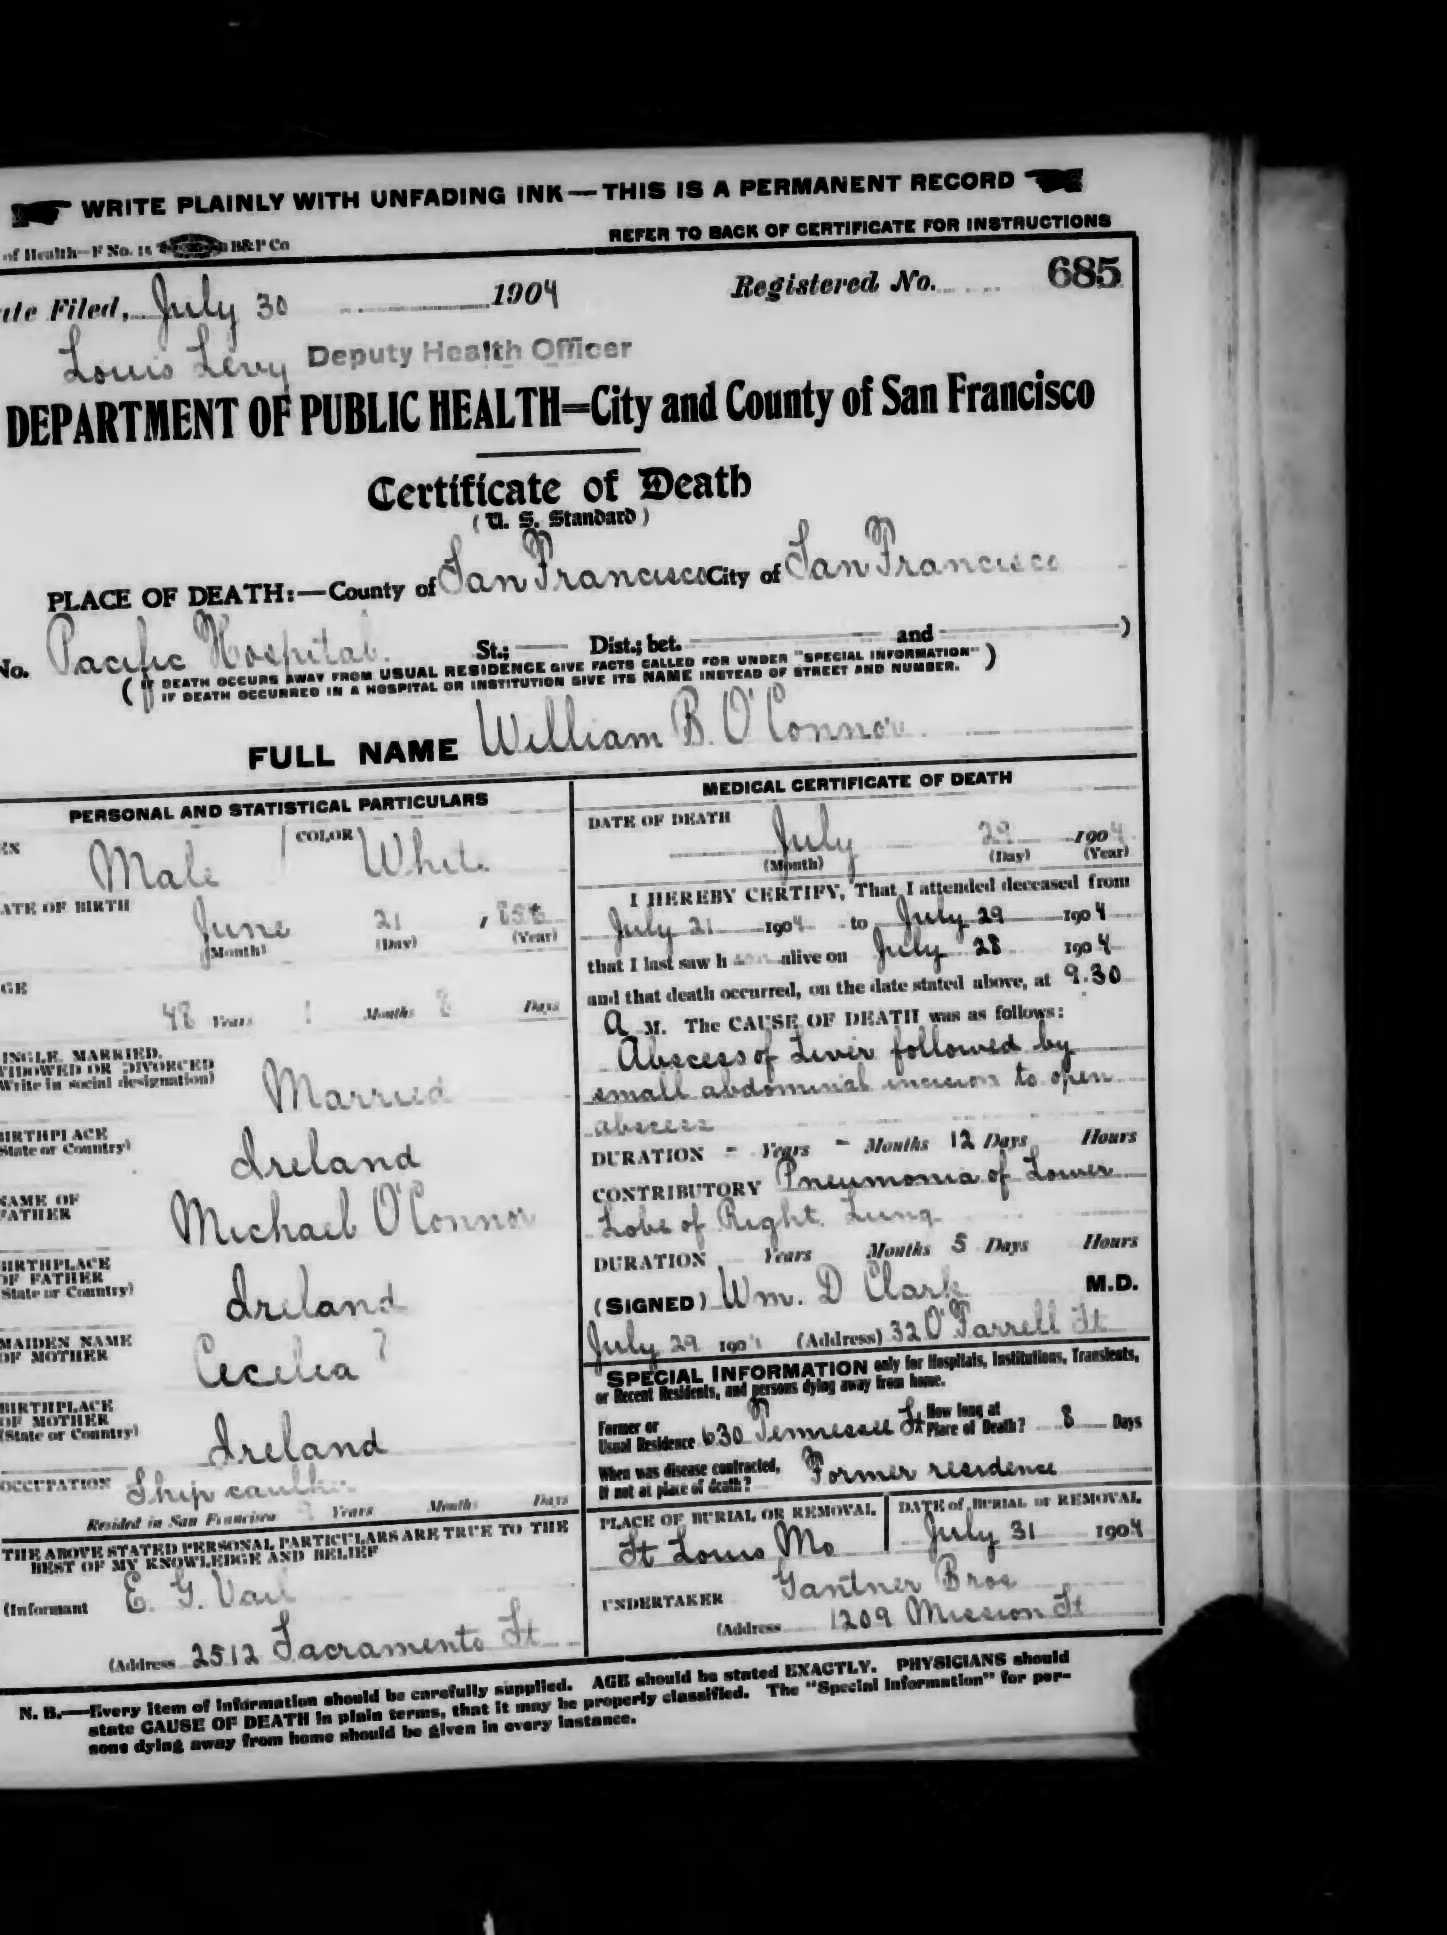 WRITE PLAINLY WITH UNFADING INK — THIS IS A PERMANENT RECORD
of Health—F No. 15 B&P Co
REFER TO BACK OF CERTIFICATE FOR INSTRUCTIONS
ate Filed, July 30 1904 Registered No. 685
Louis Levy Deputy Health Officer
DEPARTMENT OF PUBLIC HEALTH=City and County of San Francisco
Certificate of Death
(U. S. Standard)
PLACE OF DEATH:—County of San Francisco City of San Francisco
No. Pacific Hospital St.; Dist.; bet. and )
( IF DEATH OCCURS AWAY FROM USUAL RESIDENCE GIVE FACTS CALLED FOR UNDER "SPECIAL INFORMATION" )
IF DEATH OCCURRED IN A HOSPITAL OR INSTITUTION GIVE ITS NAME INSTEAD OF STREET AND NUMBER.
FULL NAME William B. O'Connor
PERSONAL AND STATISTICAL PARTICULARS
EX Male COLOR White
ATE OF BIRTH
June 21
(Month) (Day) (Year)
GE
48 Years 1 Months 8 Days
INGLE, MARRIED,
WIDOWED OR DIVORCED
Write in social designation) Married
BIRTHPLACE
State or Country) Ireland
NAME OF
FATHER Michael O'Connor
BIRTHPLACE
OF FATHER
State or Country) Ireland
MAIDEN NAME
OF MOTHER Cecelia ?
BIRTHPLACE
OF MOTHER
(State or Country) Ireland
OCCUPATION Ship caulker
Resided in San Francisco Years Months Days
THE ABOVE STATED PERSONAL PARTICULARS ARE TRUE TO THE
BEST OF MY KNOWLEDGE AND BELIEF
(Informant E. G. Vail
(Address 2512 Sacramento St
MEDICAL CERTIFICATE OF DEATH
DATE OF DEATH
July 29 1904
(Month) (Day) (Year)
I HEREBY CERTIFY, That I attended deceased from
July 21 1904 to July 29 1904
that I last saw h alive on July 28 1904
and that death occurred, on the date stated above, at 9.30
A M. The CAUSE OF DEATH was as follows:
Abscess of Liver followed by
small abdominal incision to open
abscess
DURATION - Years - Months 12 Days Hours
CONTRIBUTORY Pneumonia of Lower
Lobe of Right Lung
DURATION Years Months 5 Days Hours
(SIGNED) Wm. D Clark M.D.
July 29 1904 (Address) 32 O'Farrell St
SPECIAL INFORMATION only for Hospitals, Institutions, Transients,
or Recent Residents, and persons dying away from home.
Former or
Usual Residence 630 Tennessee St How long at
Place of Death? 8 Days
When was disease contracted,
If not at place of death? Former residence
PLACE OF BURIAL OR REMOVAL
St Louis Mo
DATE of BURIAL or REMOVAL
July 31 1904
UNDERTAKER Gantner Bros
(Address 1209 Mission St
N. B.—Every item of information should be carefully supplied. AGE should be stated EXACTLY. PHYSICIANS should
state CAUSE OF DEATH in plain terms, that it may be properly classified. The "Special Information" for per-
sons dying away from home should be given in every instance.